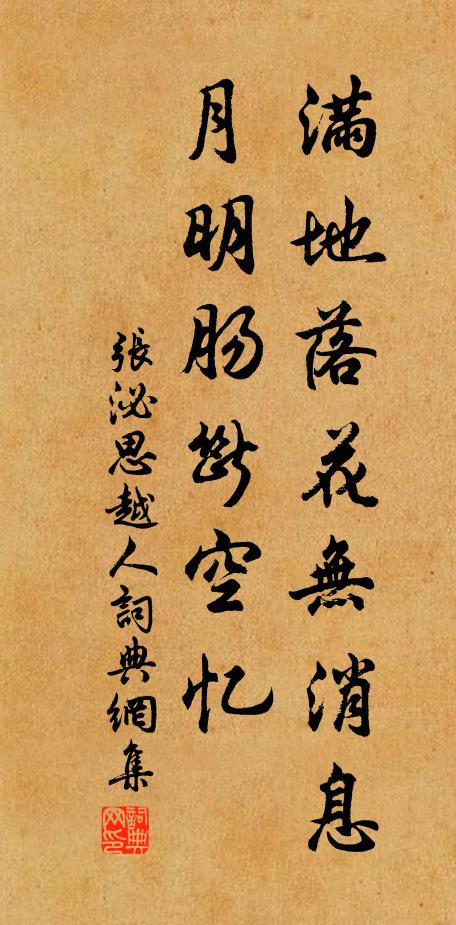 滿地落花無消息
月明肠斷空忆
張泌思越人詞典網集
詞典网印